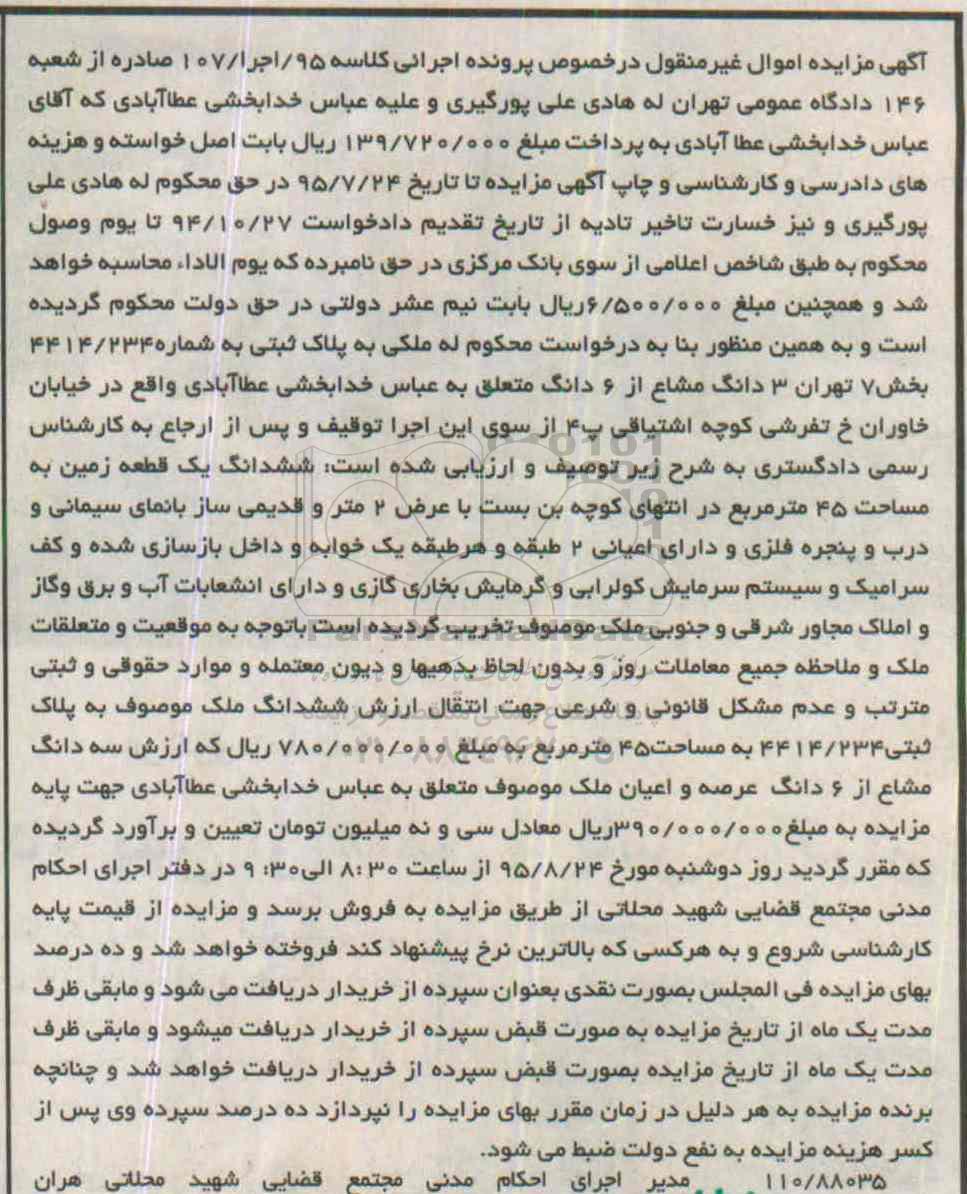 آگهی مزایده اموال غیرمنقول درخصوص پرونده اجرائی کلاسه ۹۵/اجرا/۱۰۷ صادره از شعبه
۱۴۶ دادگاه عمومی تهران له هادی علی پورگیری و علیه عباس خدابخشی عطاآبادی که آقای
عباس خدابخشی عطا آبادی به پرداخت مبلغ ۱۳۹/۷۲۰/۰۰۰ ریال بابت اصل خواسته و هزینه
های دادرسی و کارشناسی و چاپ آگهی مزایده تا تاریخ ۹۵/۷/۲۴ در حق محکوم له هادی علی
پورگیری و نیز خسارت تاخیر تادیه از تاریخ تقدیم دادخواست ۹۴/۱۰/۲۷ تا یوم وصول
محکوم به طبق شاخص اعلامی از سوی بانک مرکزی در حق نامبرده که یوم الاداء محاسبه خواهد
شد و همچنین مبلغ ۶/۵۰۰/۰۰۰ریال بابت نیم عشر دولتی در حق دولت محکوم گردیده
است و به همین منظور بنا به درخواست محکوم له ملکی به پلاک ثبتی به شماره۴۴۱۴/۲۳۴
بخش۷ تهران ۳ دانگ مشاع از ۶ دانگ متعلق به عباس خدابخشی عطاآبادی واقع در خیابان
خاوران خ تفرشی کوچه اشتیاقی پ۴ از سوی این اجرا توقیف و پس از ارجاع به کارشناس
رسمی دادگستری به شرح زیر توصیف و ارزیابی شده است: ششدانگ یک قطعه زمین به
مساحت ۴۵ مترمربع در انتهای کوچه بن بست با عرض ۲ متر و قدیمی ساز بانمای سیمانی و
درب و پنجره فلزی و دارای اعیانی ۲ طبقه و هرطبقه یک خوابه و داخل بازسازی شده و کف
سرامیک و سیستم سرمایش کولرابی و گرمایش بخاری گازی و دارای انشعابات آب و برق وگاز
و املاک مجاور شرقی و جنوبی ملک موصوف تخریب گردیده است باتوجه به موقعیت و متعلقات
ملک و ملاحظه جمیع معاملات روز و بدون لحاظ بدهیها و دیون معتمله و موارد حقوقی و ثبتی
مترتب و عدم مشکل قانونی و شرعی جهت انتقال ارزش ششدانگ ملک موصوف به پلاک
ثبتی۴۴۱۴/۲۳۴ به مساحت۴۵ مترمربع به مبلغ ۷۸۰/۰۰۰/۰۰۰ ریال که ارزش سه دانگ
مشاع از ۶ دانگ عرصه و اعیان ملک موصوف متعلق به عباس خدابخشی عطاآبادی جهت پایه
مزایده به مبلغ۳۹۰/۰۰۰/۰۰۰ریال معادل سی و نه میلیون تومان تعیین و برآورد گردیده
که مقرر گردید روز دوشنبه مورخ ۹۵/۸/۲۴ از ساعت ۸:۳۰ الی۹:۳۰ در دفتر اجرای احکام
مدنی مجتمع قضایی شهید محلاتی از طریق مزایده به فروش برسد و مزایده از قیمت پایه
کارشناسی شروع و به هرکسی که بالاترین نرخ پیشنهاد کند فروخته خواهد شد و ده درصد
بهای مزایده فی المجلس بصورت نقدی بعنوان سپرده از خریدار دریافت می شود و مابقی ظرف
مدت یک ماه از تاریخ مزایده به صورت قبض سپرده از خریدار دریافت میشود و مابقی ظرف
مدت یک ماه از تاریخ مزایده بصورت قبض سپرده از خریدار دریافت خواهد شد و چنانچه
برنده مزایده به هر دلیل در زمان مقرر بهای مزایده را نپردازد ده درصد سپرده وی پس از
کسر هزینه مزایده به نفع دولت ضبط می شود.
۱۱۰/۸۸۰۳۵ مدیر اجرای احکام مدنی مجتمع قضایی شهید محلاتی هران